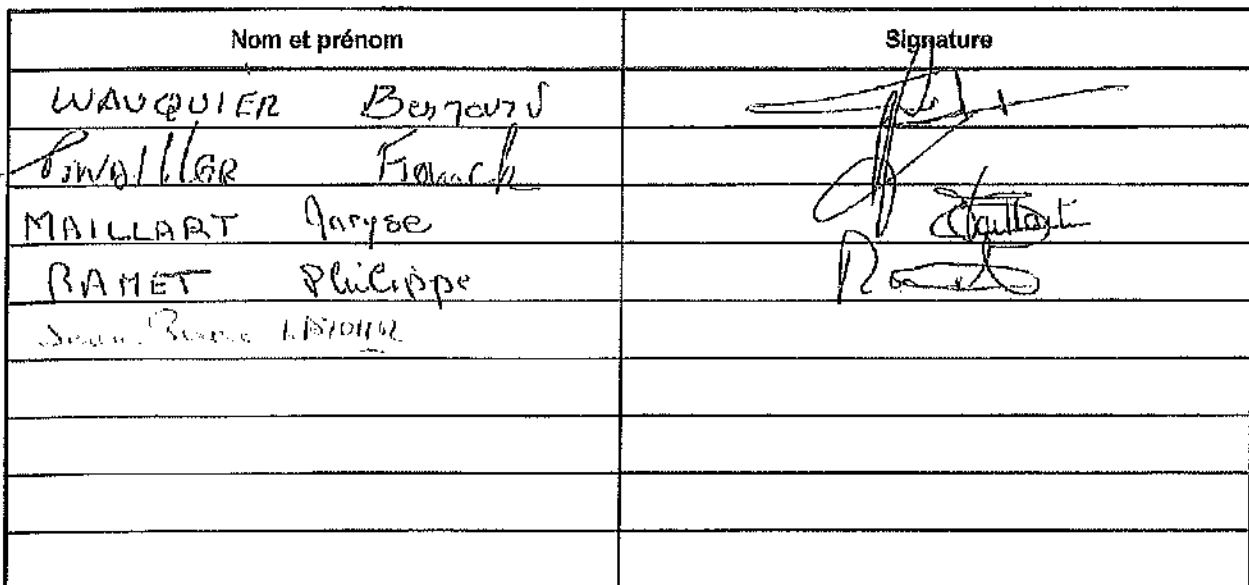 Nom et prénom Signature
WAUQUIER Bernard
Franck
MAILLART Maryse
RAMET Philippe
Jean Pierre